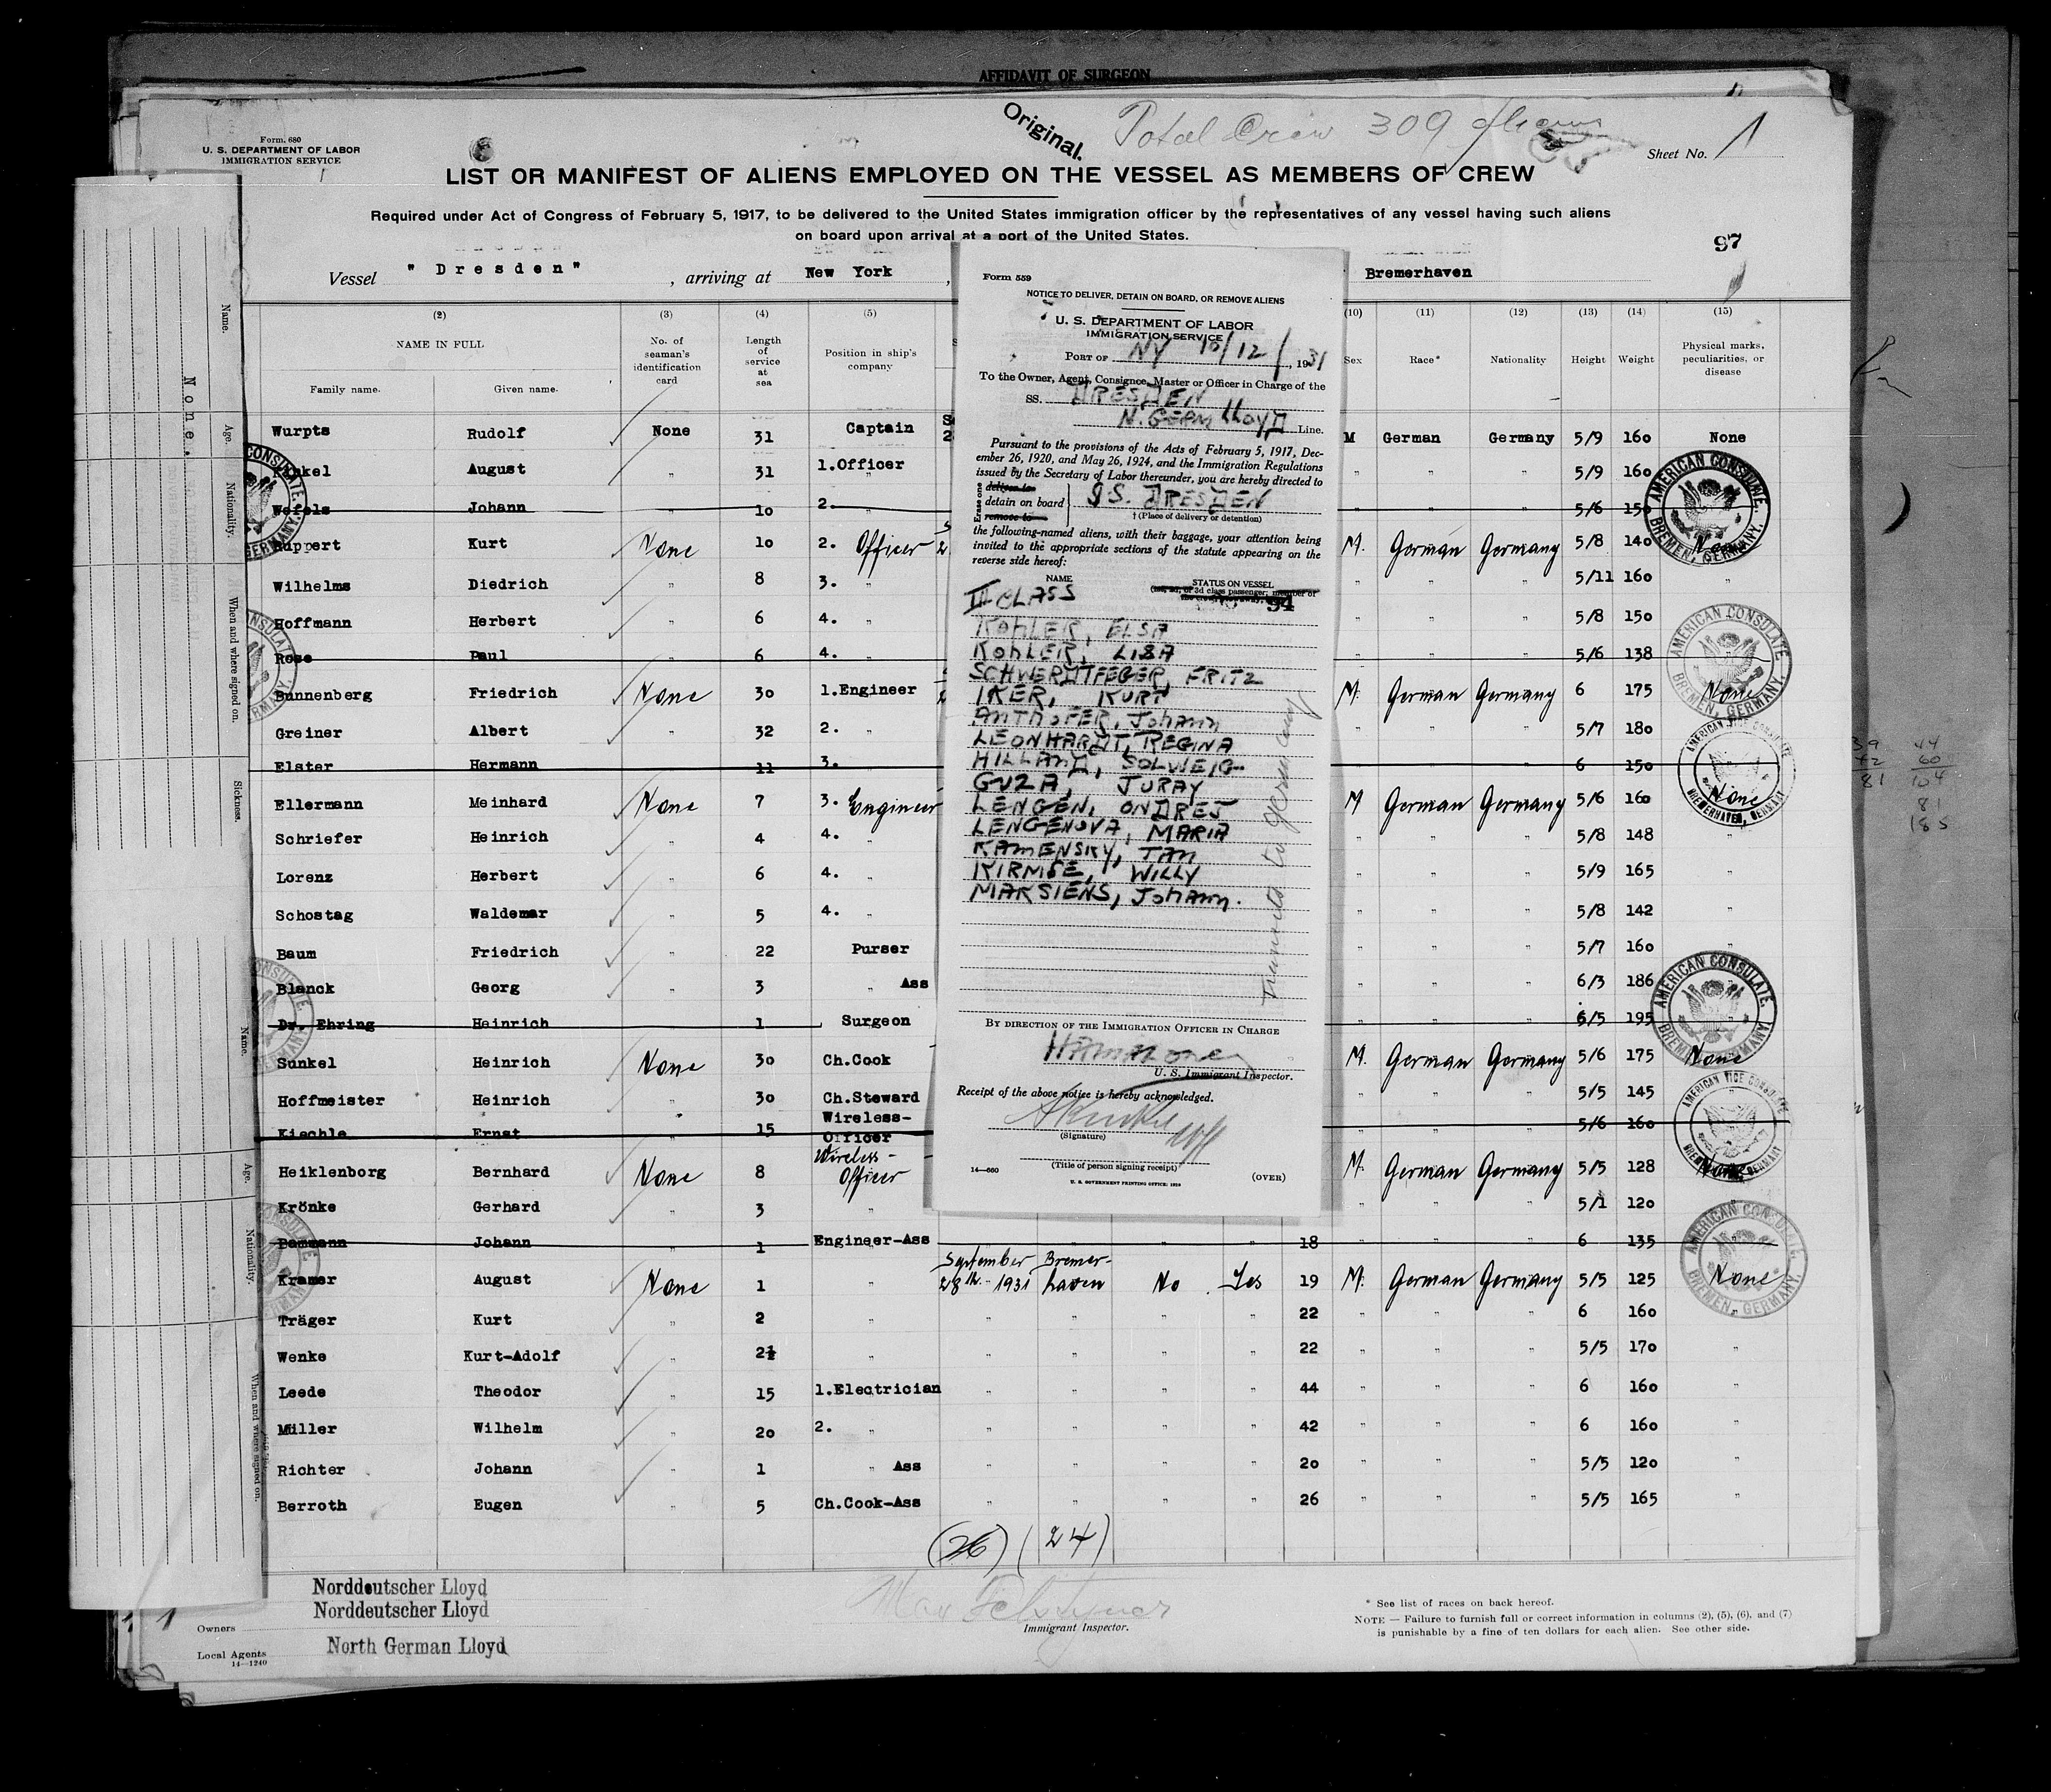 AFFIDAVIT OF SURGEON
Original.
Total Crew 309 aliens
Form 680
U. S. DEPARTMENT OF LABOR
IMMIGRATION SERVICE
Sheet No. 1
LIST OR MANIFEST OF ALIENS EMPLOYED ON THE VESSEL AS MEMBERS OF CREW
Required under Act of Congress of February 5, 1917, to be delivered to the United States immigration officer by the representatives of any vessel having such aliens
on board upon arrival at a port of the United States.
97
Vessel "Dresden", arriving at New York, Bremerhaven
(2) (3) (4) (5) (10) (11) (12) (13) (14) (15)
NAME IN FULL
Family name. Given name.
No. of seaman's identification card
Length of service at sea
Position in ship's company
Sex Race* Nationality Height Weight
Physical marks, peculiarities, or disease
Wurpts Rudolf None 31 Captain M German Germany 5/9 160 None
Kinkel August " 31 1.Officer " " " 5/9 160
Wefels Johann " 10 2. " " " 5/6 150
Ruppert Kurt None 10 2. Officer M. German Germany 5/8 140 None
Wilhelms Diedrich " 8 3. " " " " 5/11 160 "
Hoffmann Herbert " 6 4. " " " " 5/8 150
Rose Paul " 6 4. " " " " 5/6 138
Bunnenberg Friedrich None 30 1.Engineer M. German Germany 6 175 None
Greiner Albert " 32 2. " " " " 5/7 180
Elster Hermann 11 3. " " " 6 150
Ellermann Meinhard None 7 3. Engineer M German Germany 5/6 160 None
Schriefer Heinrich " 4 4. " " " " 5/8 148 "
Lorenz Herbert " 6 4. " " " " 5/9 165 "
Schostag Waldemar " 5 4. " " " " 5/8 142 "
Baum Friedrich " 22 Purser " " " 5/7 160 "
Blanck Georg " 3 " Ass " " " 6/3 186
Dr. Ehring Heinrich " 1 Surgeon " " " 6/5 195
Sunkel Heinrich None 30 Ch.Cook M. German Germany 5/6 175 None
Hoffmeister Heinrich " 30 Ch.Steward " " " 5/5 145
Kiechle Ernst " 15 Wireless-Officer " " " 5/6 160
Heiklenborg Bernhard None 8 Wireless-Officer M. German Germany 5/5 128 None
Krönke Gerhard " 3 " " " " 5/1 120
Bammann Johann 1 Engineer-Ass " " " " 18 " " " 6 135
Kramer August None 1 " September 28th 1931 Bremerhaven No Yes 19 M. German Germany 5/5 125 None
Träger Kurt " 2 " " " " " 22 " " " 6 160 "
Wenke Kurt-Adolf " 2½ " " " " " 22 " " " 5/5 170 "
Leede Theodor " 15 1.Electrician " " " " 44 " " " 6 160 "
Müller Wilhelm " 20 2. " " " " " 42 " " " 6 160 "
Richter Johann " 1 " Ass " " " " 20 " " " 5/5 120 "
Berroth Eugen " 5 Ch.Cook-Ass " " " " 26 " " " 5/5 165 "
(26) (24)
Norddeutscher Lloyd
Norddeutscher Lloyd
Owners
North German Lloyd
Local Agents
14—1240
Immigrant Inspector.
* See list of races on back hereof.
NOTE — Failure to furnish full or correct information in columns (2), (5), (6), and (7)
is punishable by a fine of ten dollars for each alien. See other side.
Form 559
NOTICE TO DELIVER, DETAIN ON BOARD, OR REMOVE ALIENS
U. S. DEPARTMENT OF LABOR
IMMIGRATION SERVICE
PORT OF NY 10/12/, 1931
To the Owner, Agent, Consignee, Master or Officer in Charge of the
SS. DRESDEN
N. GERM LLOYD Line.
Pursuant to the provisions of the Acts of February 5, 1917, Dec-
ember 26, 1920, and May 26, 1924, and the Immigration Regulations
issued by the Secretary of Labor thereunder, you are hereby directed to
Erase one
deliver to
detain on board } SS. DRESDEN
remove to † (Place of delivery or detention)
the following-named aliens, with their baggage, your attention being
invited to the appropriate sections of the statute appearing on the
reverse side hereof:
NAME STATUS ON VESSEL
(1st, 2d, or 3d class passenger; member of
III CLASS 94
KOHLER, ELSA
KOHLER, LISA
SCHWERDTFEGER, FRITZ
IKER, KURT
ANTHOFER, JOHANN
LEONHARDT, REGINA
HILLAND, SOLWEIG
GUZA, JURAY
LENGEN, ONDREJ
LENGENOVA, MARIA
KAMENSKY, JAN
KIRMSE, WILLY
MAKSIENS, JOHANN.
BY DIRECTION OF THE IMMIGRATION OFFICER IN CHARGE
U. S. Immigrant Inspector.
Receipt of the above notice is hereby acknowledged.
(Signature)
14—660 (Title of person signing receipt) (OVER)
U. S. GOVERNMENT PRINTING OFFICE: 1928
AMERICAN CONSULATE.
BREMEN, GERMANY.
AMERICAN CONSULATE.
BREMEN, GERMANY.
AMERICAN VICE CONSULATE
BREMERHAVEN, GERMANY
AMERICAN CONSULATE.
BREMEN, GERMANY.
AMERICAN VICE CONSULATE
AMERICAN CONSULATE.
BREMEN, GERMANY.
None.
Name.
Age.
Nationality.
When and where signed on.
Sickness.
Name.
Age.
Nationality.
When and where signed on.